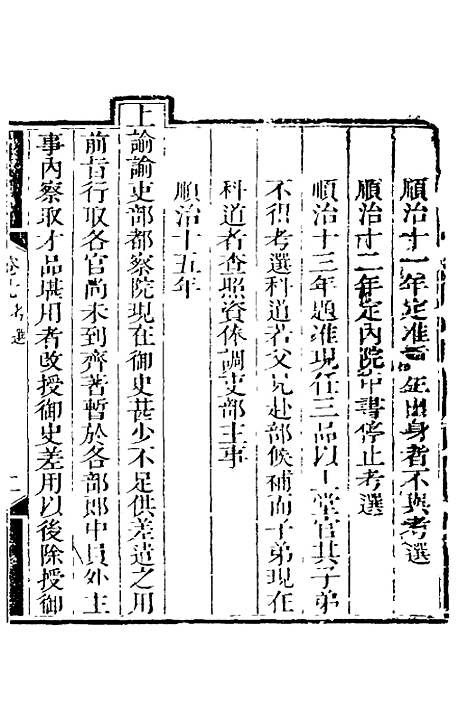 順治十一年定准貢年出身者不與考選
順治十二年定內院中書停止考選
順治十三年題准現任三品以上堂官其子弟
不得考選科道若父兄赴部候補而子弟現在
科道者查照資俸調吏部主事
順治十五年
上諭諭吏部都察院現在御史甚少不足供差遣之用
前者行取各官尚未到齊著暫於各部郎中員外主
事內察取才品堪用者改授御史差用以後除授御
卷七 考選
二